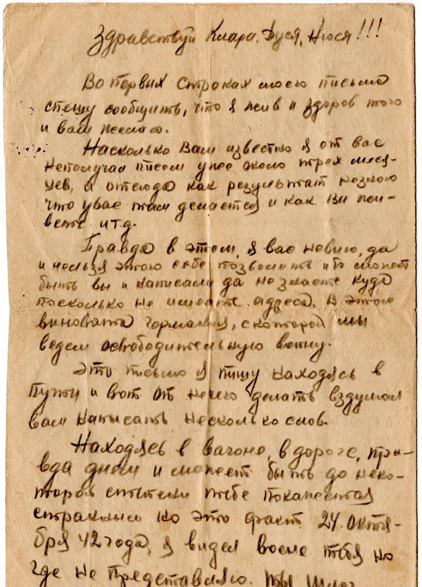 Здравствуй Клара, Дуся, Нюся!!!
Во первых строках моего письма
спешу сообщить, что я жив и здоров того
и вам желаю.
Насколько Вам известно я от вас
неполучал писем уже около трех меся-
цев, а отсюда как результат незнаю
что увас там делается и как вы жи-
вете и т.д.
Правда в этом, я вас невиню, да
и нельзя этого себе позволить и то может
быть вы и написали да не знаете куда
поскольку не имеете адреса. В этом
виновата германия, с которой мы
ведем освободительную войну.
Это письмо я пишу находясь в
пути и вот от нечего делать вздумал
вам написать несколько слов.
Находясь в вагоне, в дороге, пра-
вда днем и может быть до неко-
торой степени тебе покажется
странным но это факт 24 октя-
бря 42 года, я видел возле тебя но
где не представляю. Ты